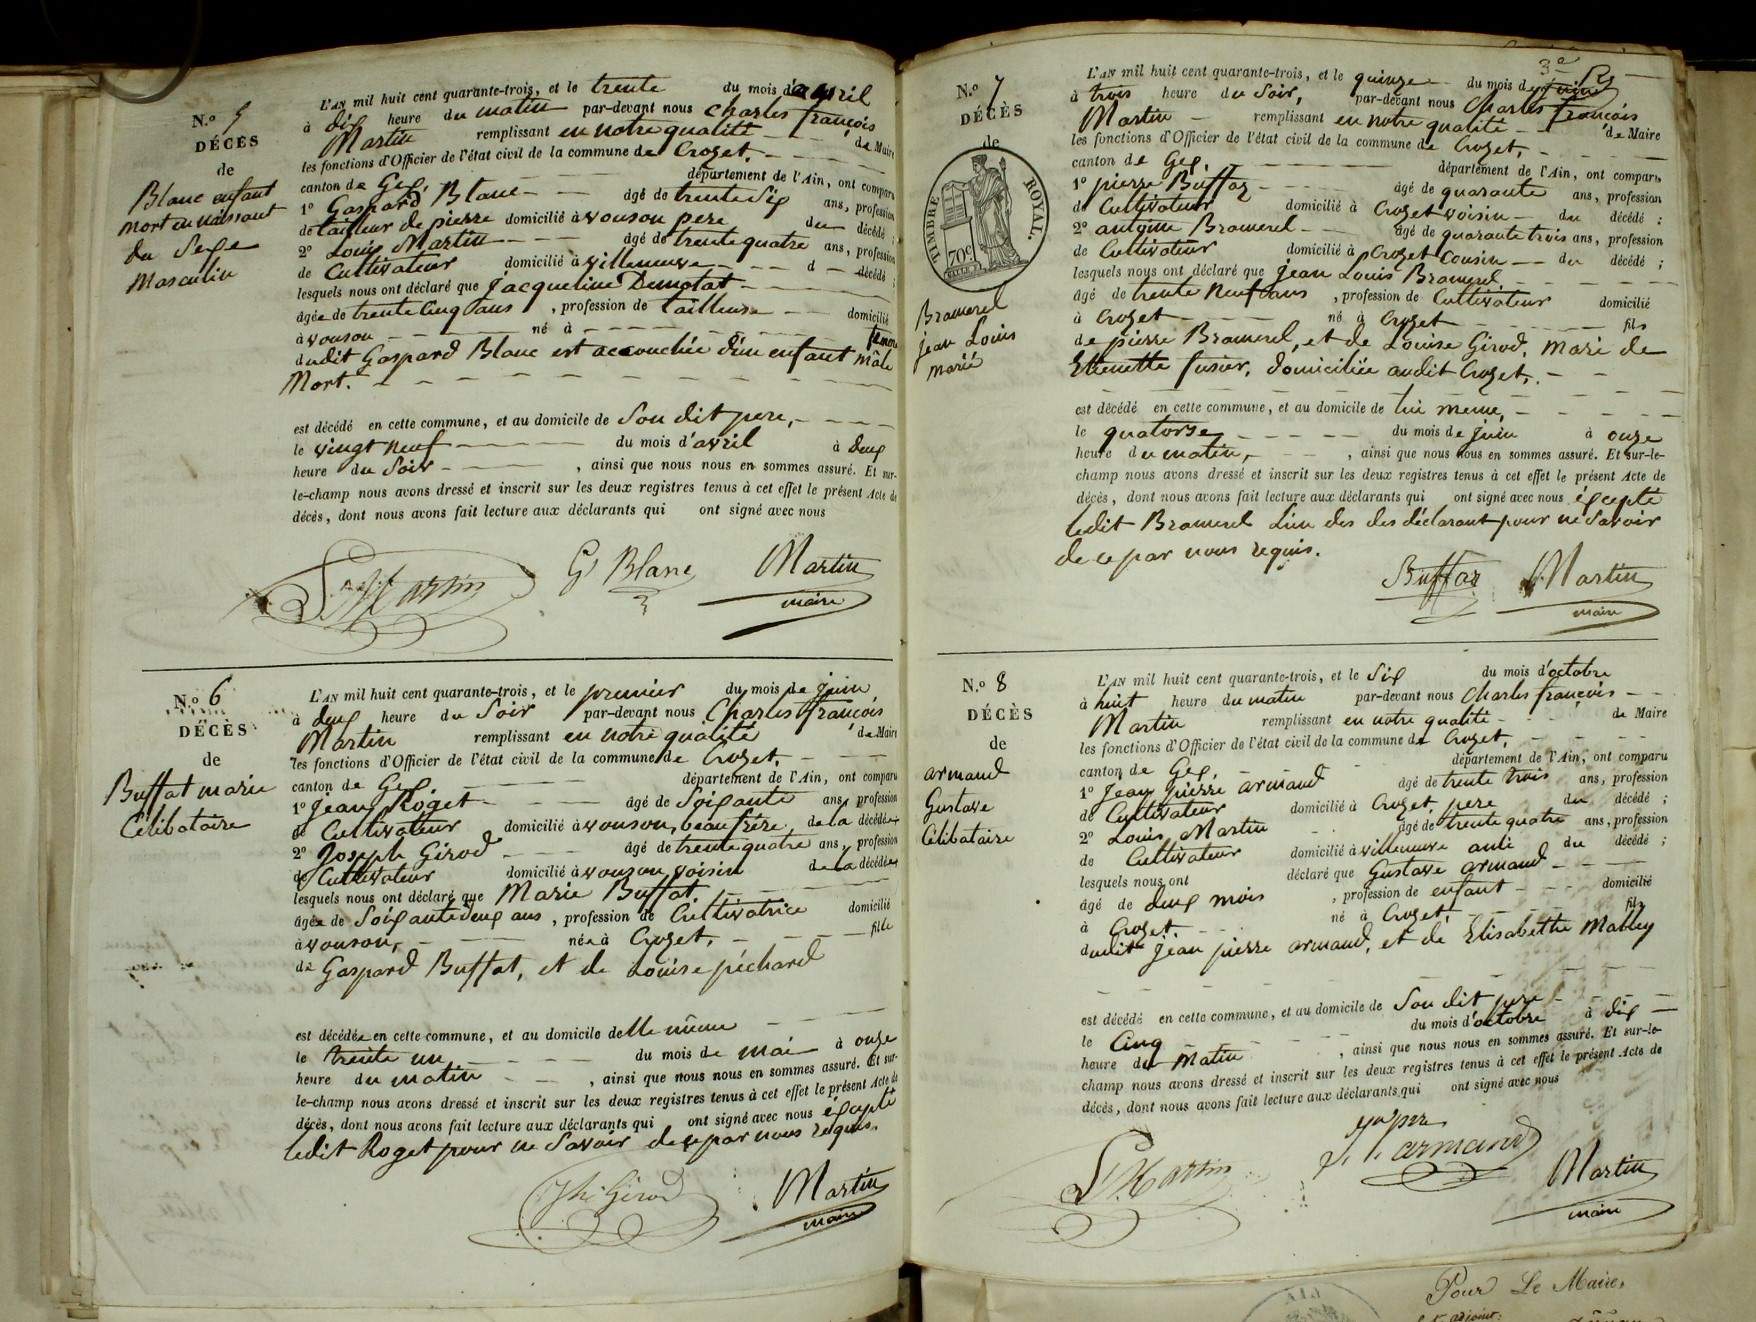 N.o 5
DÉCÈS
de
Blanc enfant
mort en naissant
du Sexe
Masculin
L'AN mil huit cent quarante-trois, et le trente du mois d'avril
à dix heure du matin par-devant nous Charles françois
Martin remplissant en notre qualité de Maire
les fonctions d'Officier de l'état civil de la commune de Crozet,
canton de Gex, département de l'Ain, ont comparu
1o Gaspard Blanc âgé de trente Six ans, profession
de tailleur de pierre domicilié à vouson pere du décédé ;
2o Louis Martin âgé de trente quatre ans, profession
de Cultivateur domicilié à villeneuve d décédé ;
lesquels nous ont déclaré que Jacqueline Dumotat
âgée de trente Cinq ans, profession de tailleuse domicilié
à vouson né à femme
dudit Gaspard Blanc est accouchée d'un enfant mâle
Mort.
est décédé en cette commune, et au domicile de Son dit pere,
le vingt neuf du mois d'avril à deux
heure du Soir, ainsi que nous nous en sommes assuré. Et sur-
le-champ nous avons dressé et inscrit sur les deux registres tenus à cet effet le présent Acte de
décès, dont nous avons fait lecture aux déclarants qui ont signé avec nous
L. Martin G Blanc Martin
maire
N.o 6
DÉCÈS
de
Buffat marie
Celibataire
L'AN mil huit cent quarante-trois, et le premier du mois de juin
à deux heure du Soir par-devant nous Charles françois
Martin remplissant en notre qualité de Maire
les fonctions d'Officier de l'état civil de la commune de Crozet,
canton de Gex, département de l'Ain, ont comparu
1o jean Roget âgé de Soixante ans, profession
de Cultivateur domicilié à vouson, beau frère de la décédée
2o Joseph Girod âgé de trente quatre ans, profession
de Cultivateur domicilié à vouson voisin de la décédée
lesquels nous ont déclaré que Marie Buffat,
âgée de Soixante deux ans, profession de Cultivatrice domicilié
à vouson, née à Crozet, fille
de Gaspard Buffat, et de Louise péchard
est décédée en cette commune, et au domicile d'elle même
le trente un du mois de mai à onze
heure du matin, ainsi que nous nous en sommes assuré. Et sur-
le-champ nous avons dressé et inscrit sur les deux registres tenus à cet effet le présent Acte de
décès, dont nous avons fait lecture aux déclarants qui ont signé avec nous excepté
ledit Roget pour ne Savoir de ce par nous requis.
Jh Girod Martin
maire
3e
N.o 7
DÉCÈS
de
TIMBRE ROYAL.
70c
Bramerel
jean Louis
marié
L'AN mil huit cent quarante-trois, et le quinze du mois de juin
à trois heure du Soir, par-devant nous Charles françois
Martin remplissant en notre qualité de Maire
les fonctions d'Officier de l'état civil de la commune de Crozet,
canton de Gex, département de l'Ain, ont comparu
1o pierre Buffaz âgé de quarante ans, profession
de Cultivateur domicilié à Crozet voisin du décédé ;
2o antoine Bramerel âgé de quarante trois ans, profession
de Cultivateur domicilié à Crozet Cousin du décédé ;
lesquels nous ont déclaré que jean Louis Bramerel
âgé de trente Neuf ans, profession de Cultivateur domicilié
à Crozet né à Crozet fils
de pierre Bramerel, et de Louise Girod, mari de
Etiennette fusier, domiciliée audit Crozet,
est décédé en cette commune, et au domicile de lui meme,
le quatorze du mois de juin à onze
heure du matin, ainsi que nous nous en sommes assuré. Et sur-le-
champ nous avons dressé et inscrit sur les deux registres tenus à cet effet le présent Acte de
décès, dont nous avons fait lecture aux déclarants qui ont signé avec nous excepté
ledit Bramerel L'un des des déclarant pour ne Savoir
de ce par nous requis.
Buffaz Martin
maire
N.o 8
DÉCÈS
de
armand
Gustave
Celibataire
L'AN mil huit cent quarante-trois, et le Six du mois d'octobre
à huit heure du matin par-devant nous Charles françois
Martin remplissant en notre qualité de Maire
les fonctions d'Officier de l'état civil de la commune de Crozet,
canton de Gex, département de l'Ain, ont comparu
1o Jean pierre armand âgé de trente trois ans, profession
de Cultivateur domicilié à Crozet, pere du décédé ;
2o Louis Martin âgé de trente quatre ans, profession
de Cultivateur domicilié à villeneuve ami du décédé ;
lesquels nous ont déclaré que Gustave armand
âgé de deux mois, profession de enfant domicilié
à Crozet né à Crozet, fils
dudit jean pierre armand, et de Elisabethe Malley
est décédé en cette commune, et au domicile de Son dit pere
le Cinq du mois d'octobre à dix
heure du Matin, ainsi que nous nous en sommes assuré. Et sur-le-
champ nous avons dressé et inscrit sur les deux registres tenus à cet effet le présent Acte de
décès, dont nous avons fait lecture aux déclarants qui ont signé avec nous
L. Martin J. P. armand Martin
maire
AIN
Pour Le Maire,